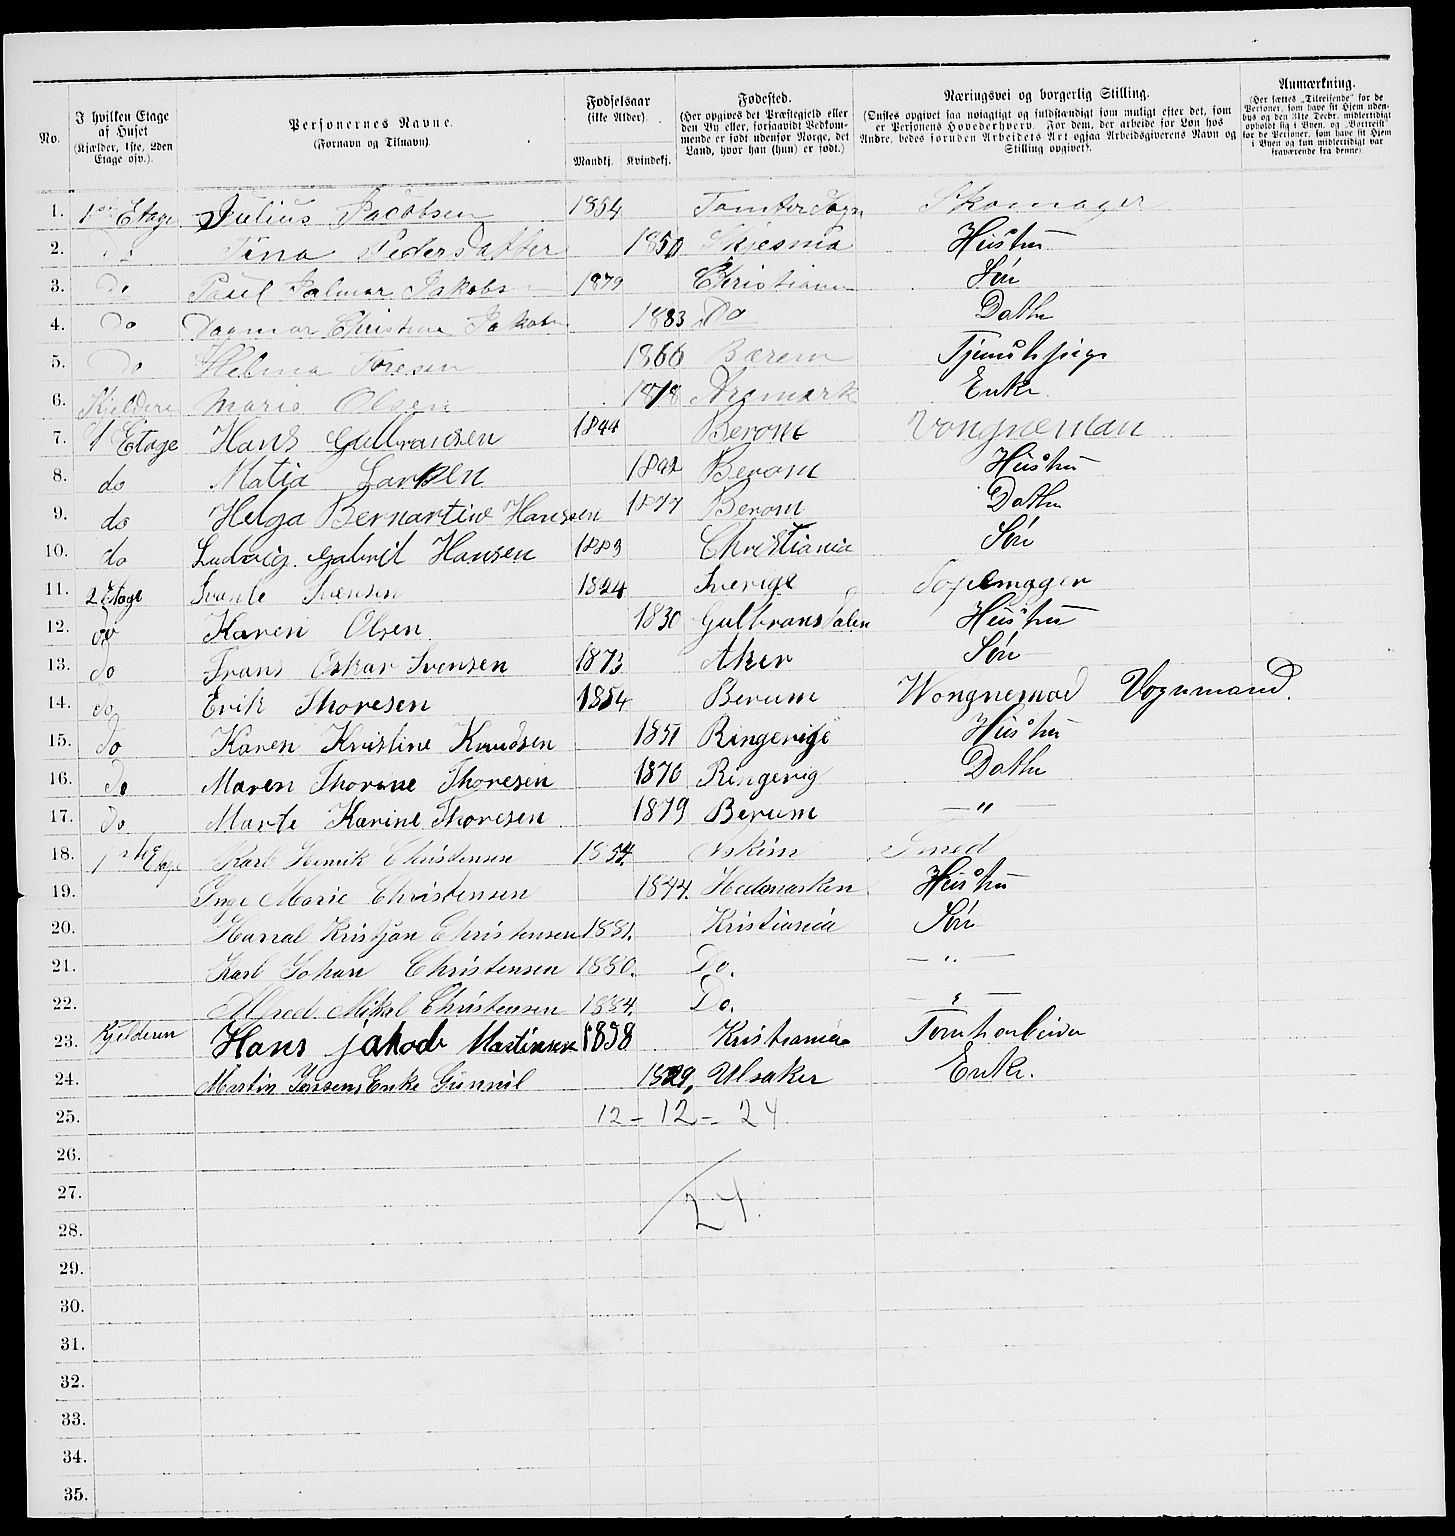 No.
I hvilken Etage af Huset (Kjælder, 1ste, 2den Etage osv.).
Personernes Navne. (Fornavn og Tilnavn)
Fødselsaar (ikke Alder). Mandkj. Kvindekj.
Fødested. (Her opgives det Præstegjeld eller den By eller, forsaavidt Vedkommende er født udenfor Norge, det Land, hvor han (hun) er født.)
Næringsvei og borgerlig Stilling. (Ønskes opgivet saa nøiagtigt og fuldstændigt som muligt efter det, som er Personens Hovederhverv. For dem, der arbeide for Løn hos Andre, bedes foruden Arbeidets Art ogsaa Arbeidsgiverens Navn og Stilling opgivet).
Anmærkning. (Her sættes „Tilreisende" for de Personer, som have sit Hjem udenbys og den 31te Decbr. midlertidigt opholdt sig i Byen, og „Bortreist" for de Personer, som have sit Hjem i Byen og kun midlertidigt var fraværende fra denne).
1. 1ste Etage Julius Jacobsen 1854 Tomter Sogn Skomager
2. Do Tina Pedersdatter 1850 Hustru
3. Do Paul Palmar Jakobs 1879 Christiania Søn
4. Do Dagmar Christine Jakobs 1883 Do Datter
5. Do Helma Toresen 1866 Bærem
6. Kjelderen Marie Olsen 1818 Aremark Enke
7. 1 Etage Hans Gulbransen 1844 Berom Vongneman
8. do Matia Larsen Berom Hustru
9. do Helga Bernartine Hanssen 1877 Berom Datter
10. do Ludvig Gabril Hansen 1883 Christiania Søn
11. 2 Etage Svante Svensen 1824 Sverige
12. do Karen Olsen 1830 Gulbransdalen Hustru
13. do Frans Oskar Svensen 1873 Aker Søn
14. do Erik Thoresen 1854 Berum Wongnemad Vognmand.
15. do Karen Kristine Knudsen 1851 Ringerige Hustru
16. do Maren Thorine Thoresen 1876 Ringerig Datter
17. do Marte Karine Thoresen 1879 Berum — " —
18. 1ste Etage Karl Henrik Christensen 1854. Askim Smed
19. Inge Marie Christensen 1844. Hedemarken Hustru
20. Harral Kristjan Christensen 1881. Kristiania Søn
21. Karl Johan Christensen 1880. Do. — " —
22. Alfred Mikal Christensen 1884. Do. — " —
23. Kjelderen Hans jakob Martinsen 1858 Kristiania Tomtarbeider
24. Martin Jensens Enke Gunnil 1829, Ulsaker Enke.
25. 12 – 12 – 24
26.
27. 24.
28.
29.
30.
31.
32.
33.
34.
35.